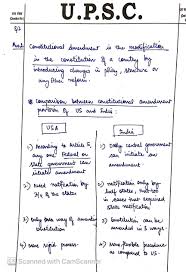 U.P.S.C.
Constitutional amendment is the modification
in the constitution of a country by
introducing changes in policy, structure or
any other reform.
Comparison between constitutional amendment
provision of US and India:
USA
India
1) According to Article 5,
any one Federal or
state government can
initiate amendment
1) Only central government
can initiate an
amendment
2) need ratification by
3/4 of the states
2) ratification only by
half states, in
cases that required
state ratification
3) Only one way of amending
constitution
3) Constitution can be
amended in 3 ways.
4) rigid process
4) more flexible procedure
as compared to US.
Scanned with CamScanner